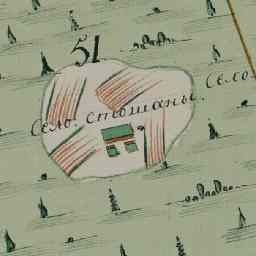 51
Село стошаны. Село